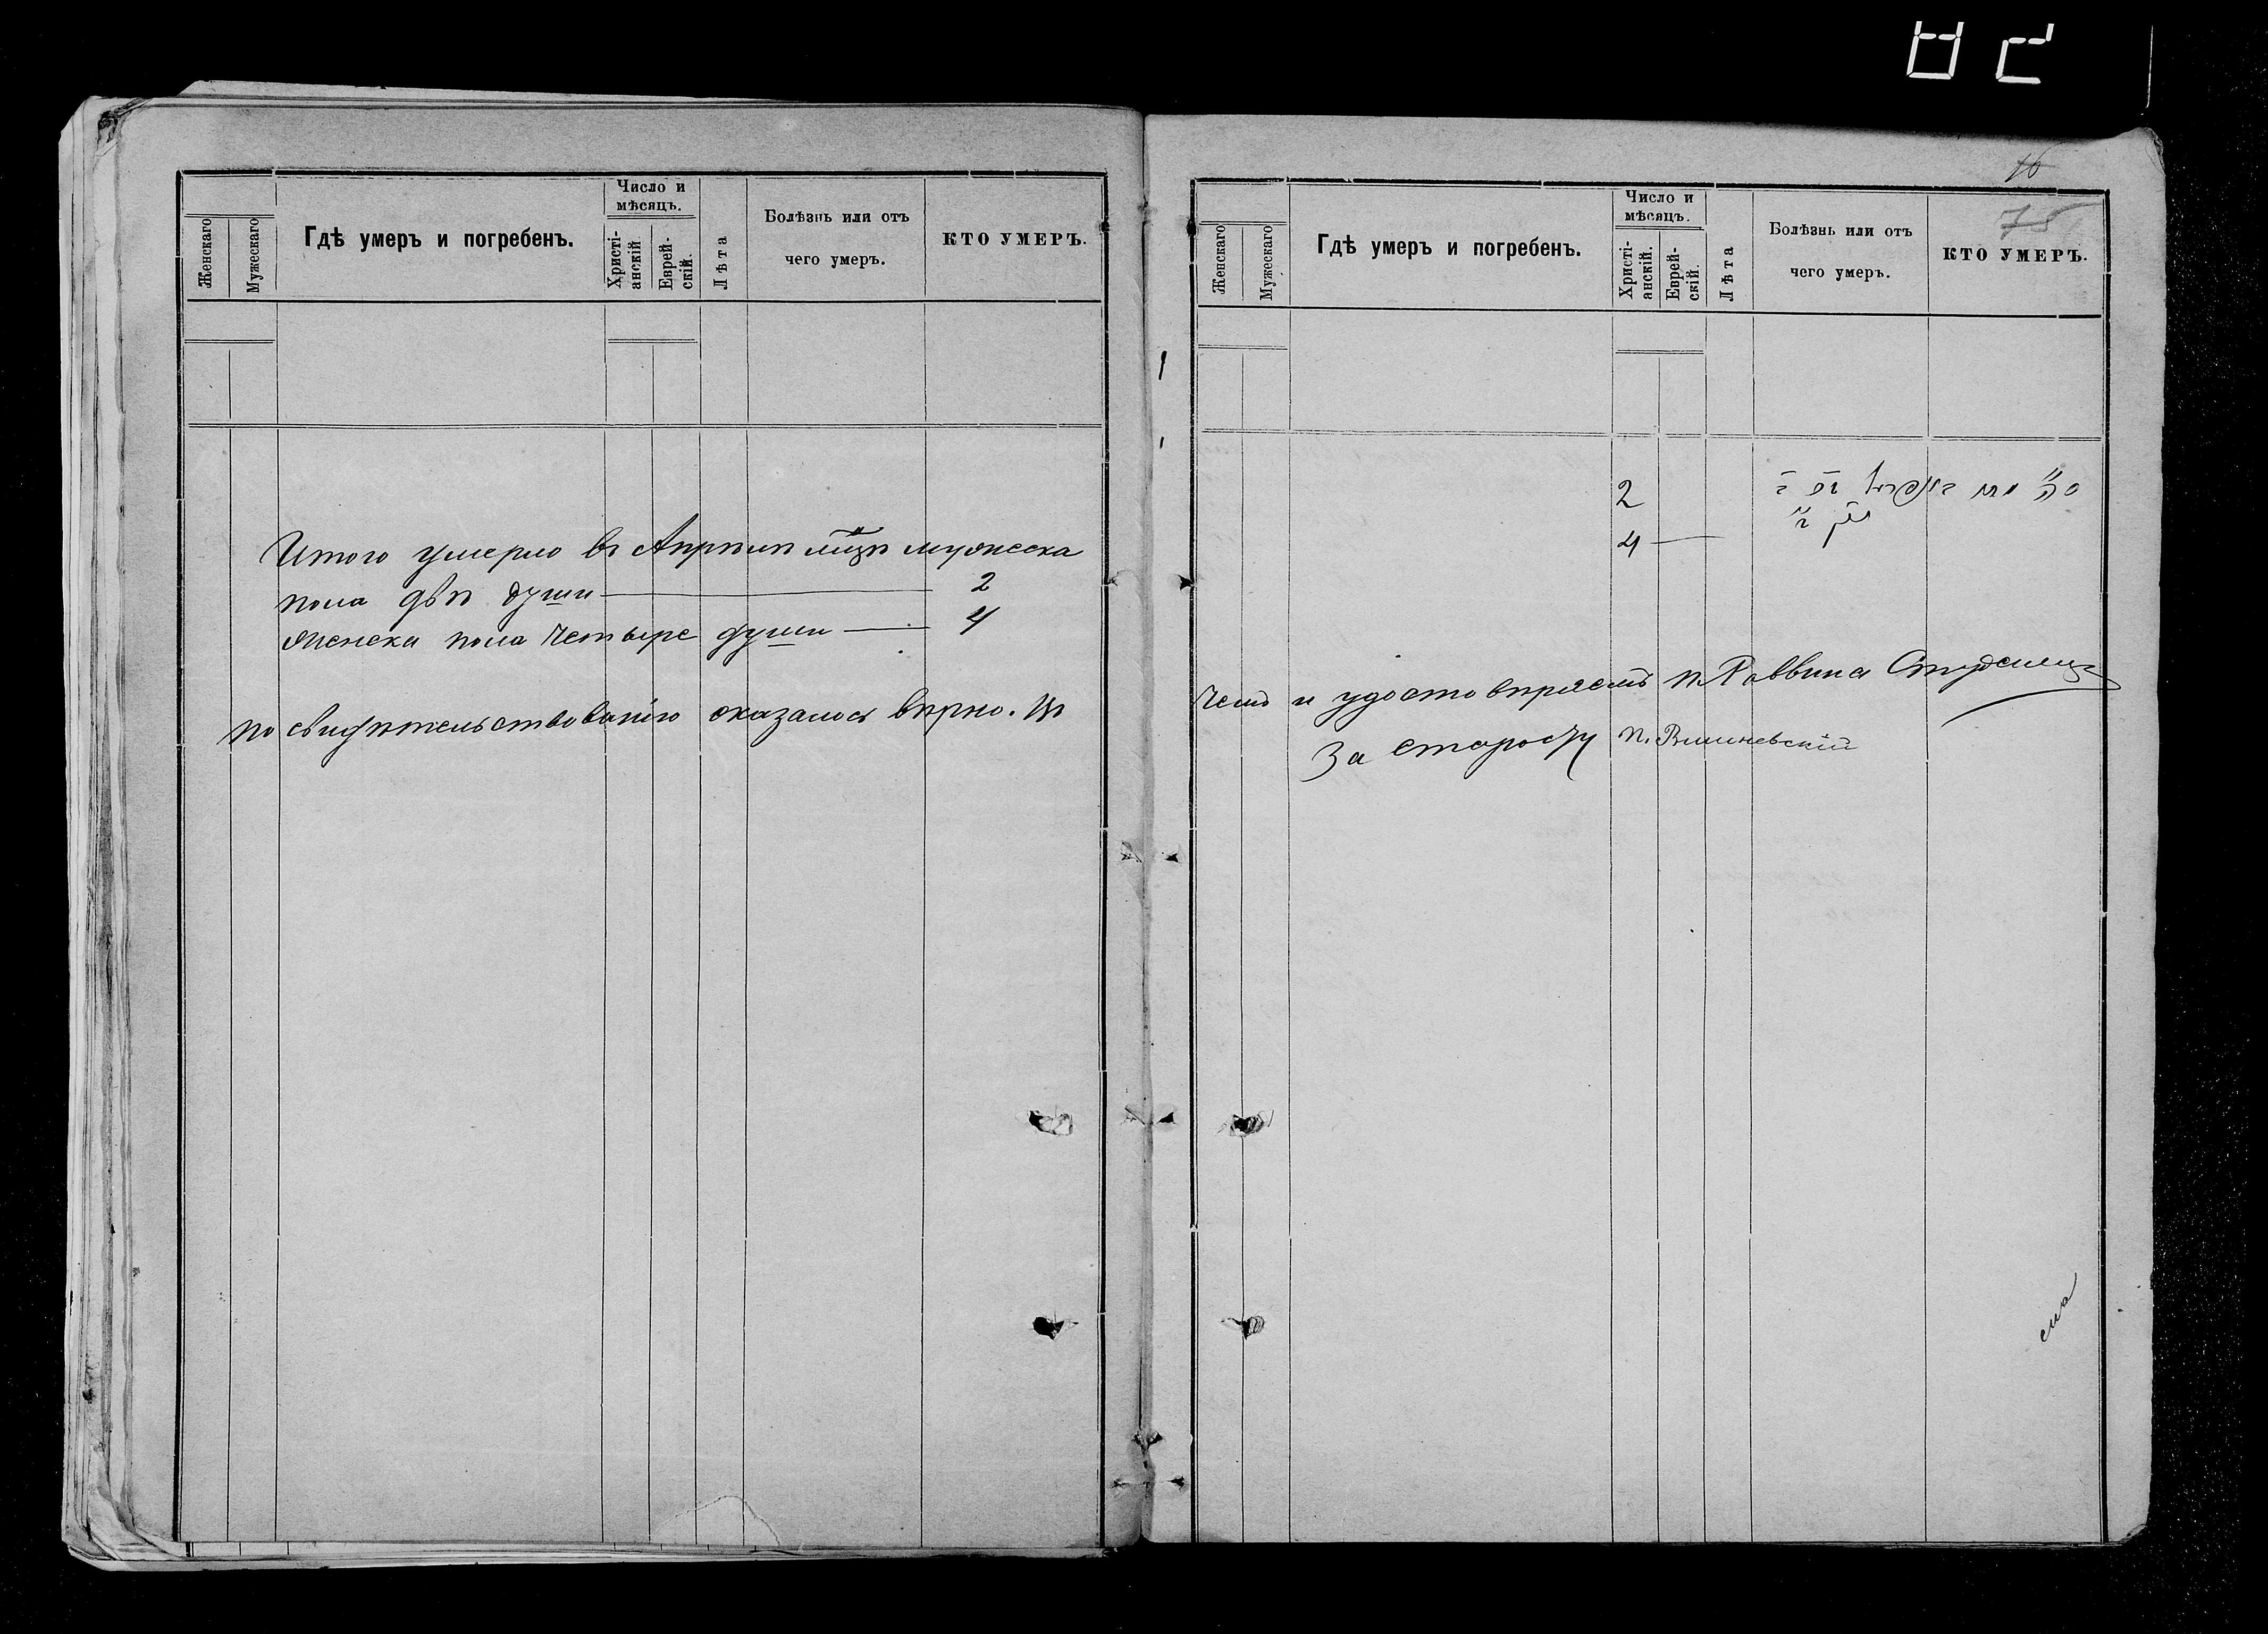 Женскаго
Мужескаго
Гдѣ умеръ и погребенъ.
Число и
мѣсяцъ.
Христі-
анскій.
Еврей-
скій.
Лѣта
Болѣзнь или отъ
чего умеръ.
КТО УМЕРЪ.
Итого умерло въ Апрѣлѣ мцѣ мужеска
пола двѣ души — 2
Женска пола четыре души — 4
по свидѣтельствованію оказалось вѣрно. въ
16
75
Женскаго
Мужескаго
Гдѣ умеръ и погребенъ.
Число и
мѣсяцъ.
Христі-
анскій.
Еврей-
скій.
Лѣта
Болѣзнь или отъ
чего умеръ.
КТО УМЕРЪ.
2
4 —
чемъ и удостовѣряемъ п. Раввина
За старосту п. Вишневскій